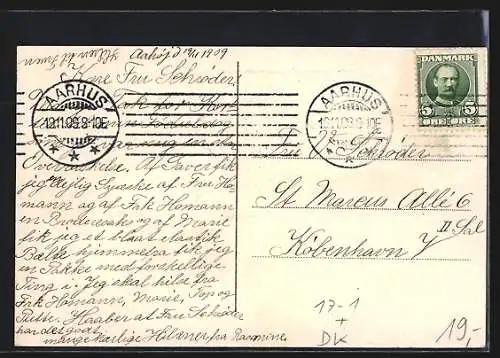 Hilsen til Fem
Aahøj d 18/11 1909
Kære Fru Schrøder
Tak for Kort
Overraskelse. Af Gaver fik
jeg dejlig Tyaske af Fru Ho-
mann og af Frk Homann
en Broderesaks og af Marie
fik jeg et blaat elastik
Bælte hjemmefra fik jeg
en Pakke med forskellige
Ting i. Jeg skal hilse fra
Frk Homann, Marie, Pop og
Putte. Haaber at Fru Schrøder
har det godt
mange kærlige Hilsner fra Rasmine
AARHUS
19.11.09. 8-10E
AARHUS
19.11.09. 8-10E
DANMARK
5 5
ØRE ØRE
Fru Schrøder
St Marcus Allé 6
II Sal
København V
17-1
+
DK
19,-